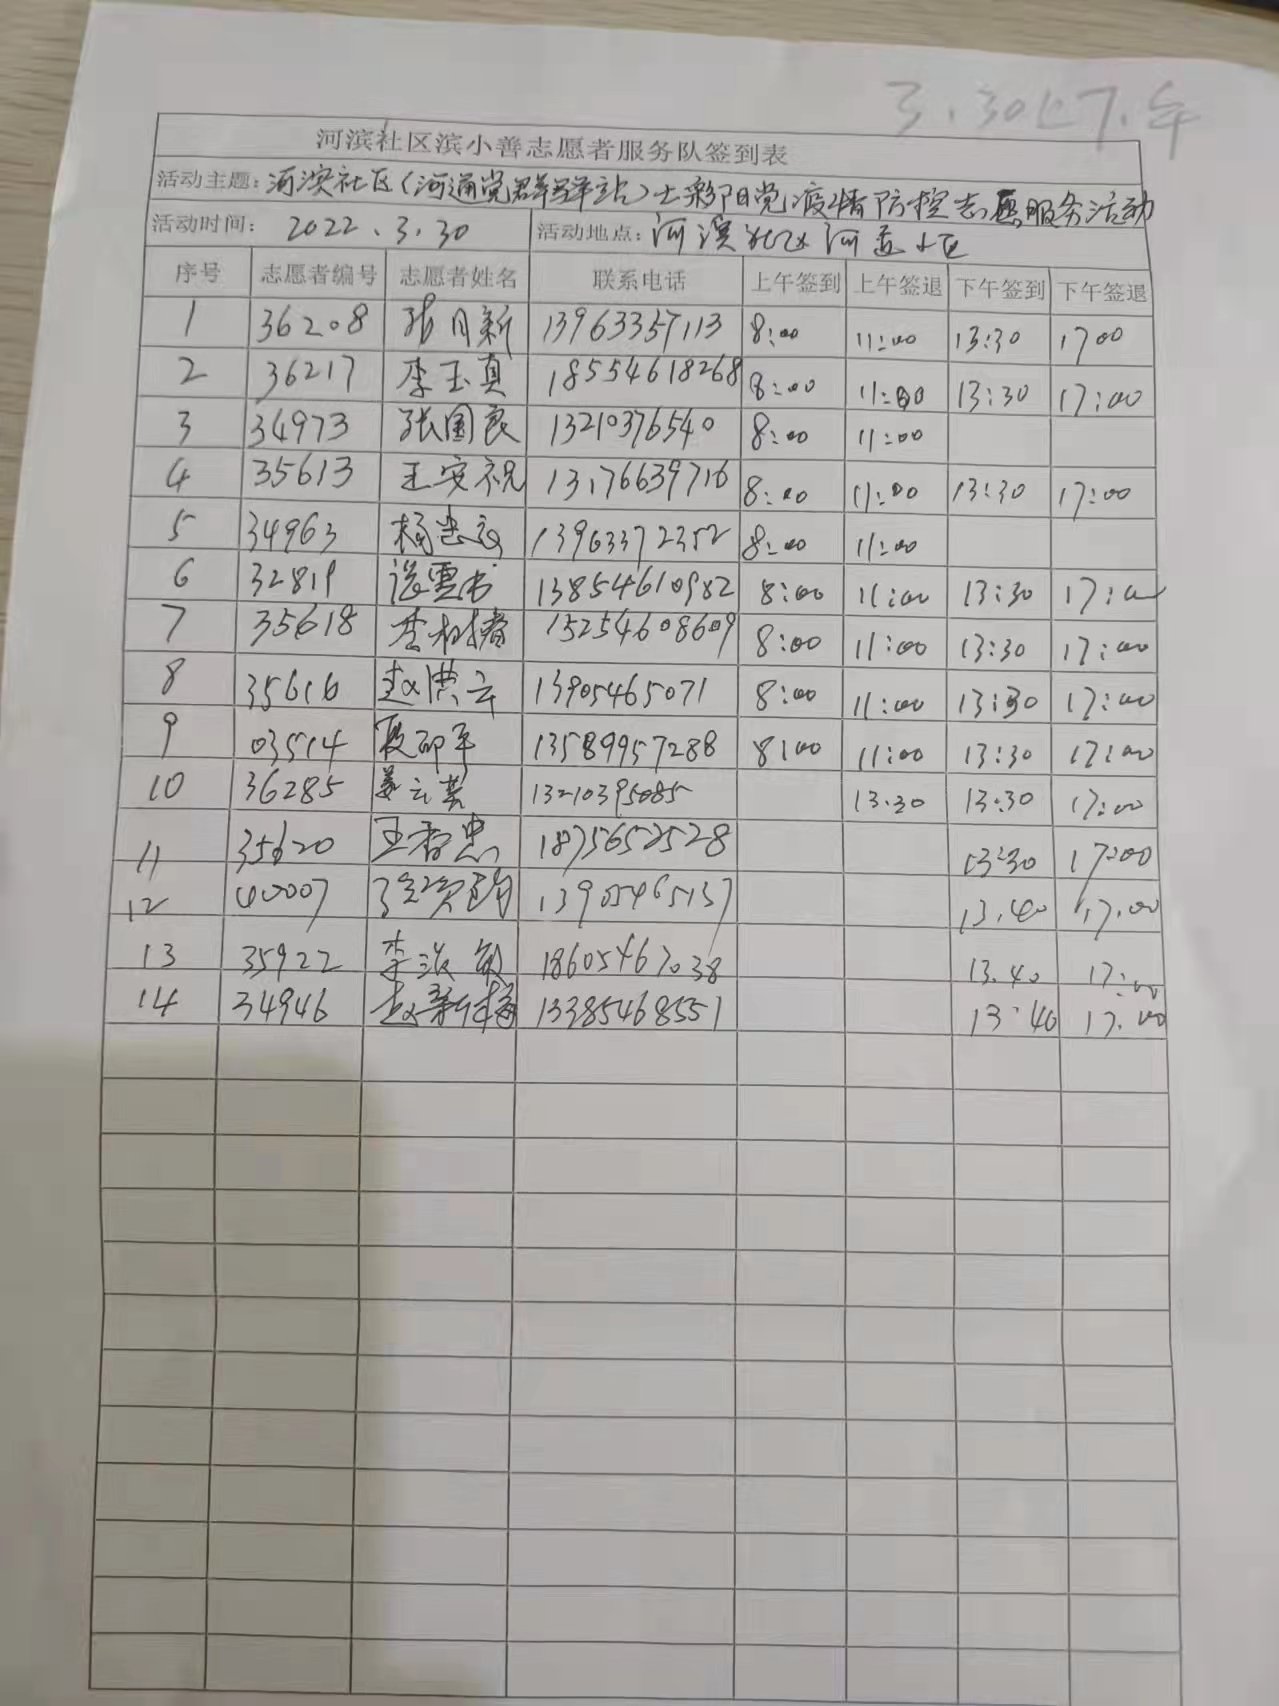 3.30上下午
河滨社区滨小善志愿者服务队签到表
活动主题:河滨社区(河通党群驿站)七彩阳党疫情防控志愿服务活动
活动时间: 2022.3.30 活动地点:河滨社区河 小区
序号 志愿者编号 志愿者姓名 联系电话 上午签到 上午签退 下午签到 下午签退
1 36208 张月新 13963357113 8:00 11:00 13:30 1700
2 36217 李玉真 18554618268 8:00 11:00 13:30 17:00
3 34973 张国良 13210376540 8:00 11:00
4 35613 王安祝 13176639716 8:00 11:00 13:30 17:00
5 34963 杨忠 13963372352 8:00 11:00
6 32819 13854610982 8:00 11:00 13:30 17:00
7 35618 李 15254608609 8:00 11:00 13:30 17:00
8 35616 赵洪云 13905465071 8:00 11:00 13:30 17:00
9 03514 13589957288 8:00 11:00 13:30 17:00
10 36285 姜云英 13210395085 13.30 13:30 17:00
11 35620 王 忠 18756652528 13:30 17:00
12 40007 13905465137 13.40 17.00
13 35922 李 敏 18605467038 13.40 17:00
14 34946 赵新梅 13385468551 13:40 17.00